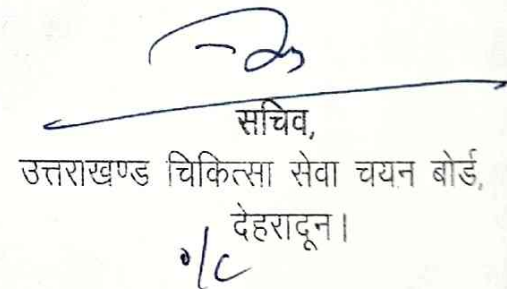 सचिव,
उत्तराखण्ड चिकित्सा सेवा चयन बोर्ड,
देहरादून।